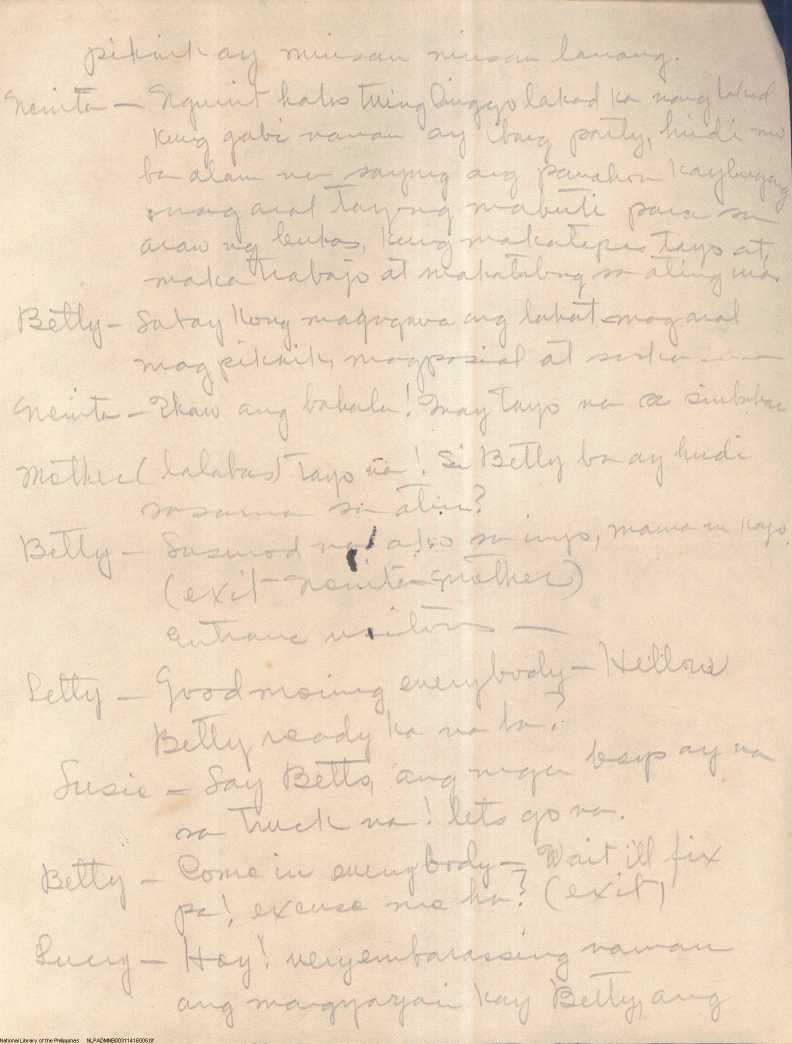 piknik ay minsan minsan lamang.
Nenita — Nguint halos tuing linggo lakad ka nang lakad
kung gabi naman ay ibang party, hindi mo
ba alam na sayng ang panahon kaybuting
mag aral tayong mabuti para sa
araw ng bukas, kung makatapus tayo at
maka trabajo at makatulong sa ating ina.
Betty — kong magagawa ang lahat mag aral
magpiknik, magpasial at saka ———
Nenita — Ikaw ang bahala! May tayo na sa simbahan
Mother (lalabas) Tayo na! Si Betty ba ay hindi
sasama sa atin?
Betty — Susunod na ako sa inyo, mauna na kayo.
(exit Nenita — Mother)
Entrance visitors —
Letty — Good moning everybody — Hellow
Betty ready ka na ba?
Susie — Say Betts, ang mga boys ay na
sa truck na! lets go na.
Betty — Come in everybody — Wait ill fix
pa!, excuse me ha? (exit)
Lucy — Hoy! very embarassing naman
ang mangyayari kay Betty, ang
National Library of the Philippines NLPADMNB00311416005.tif